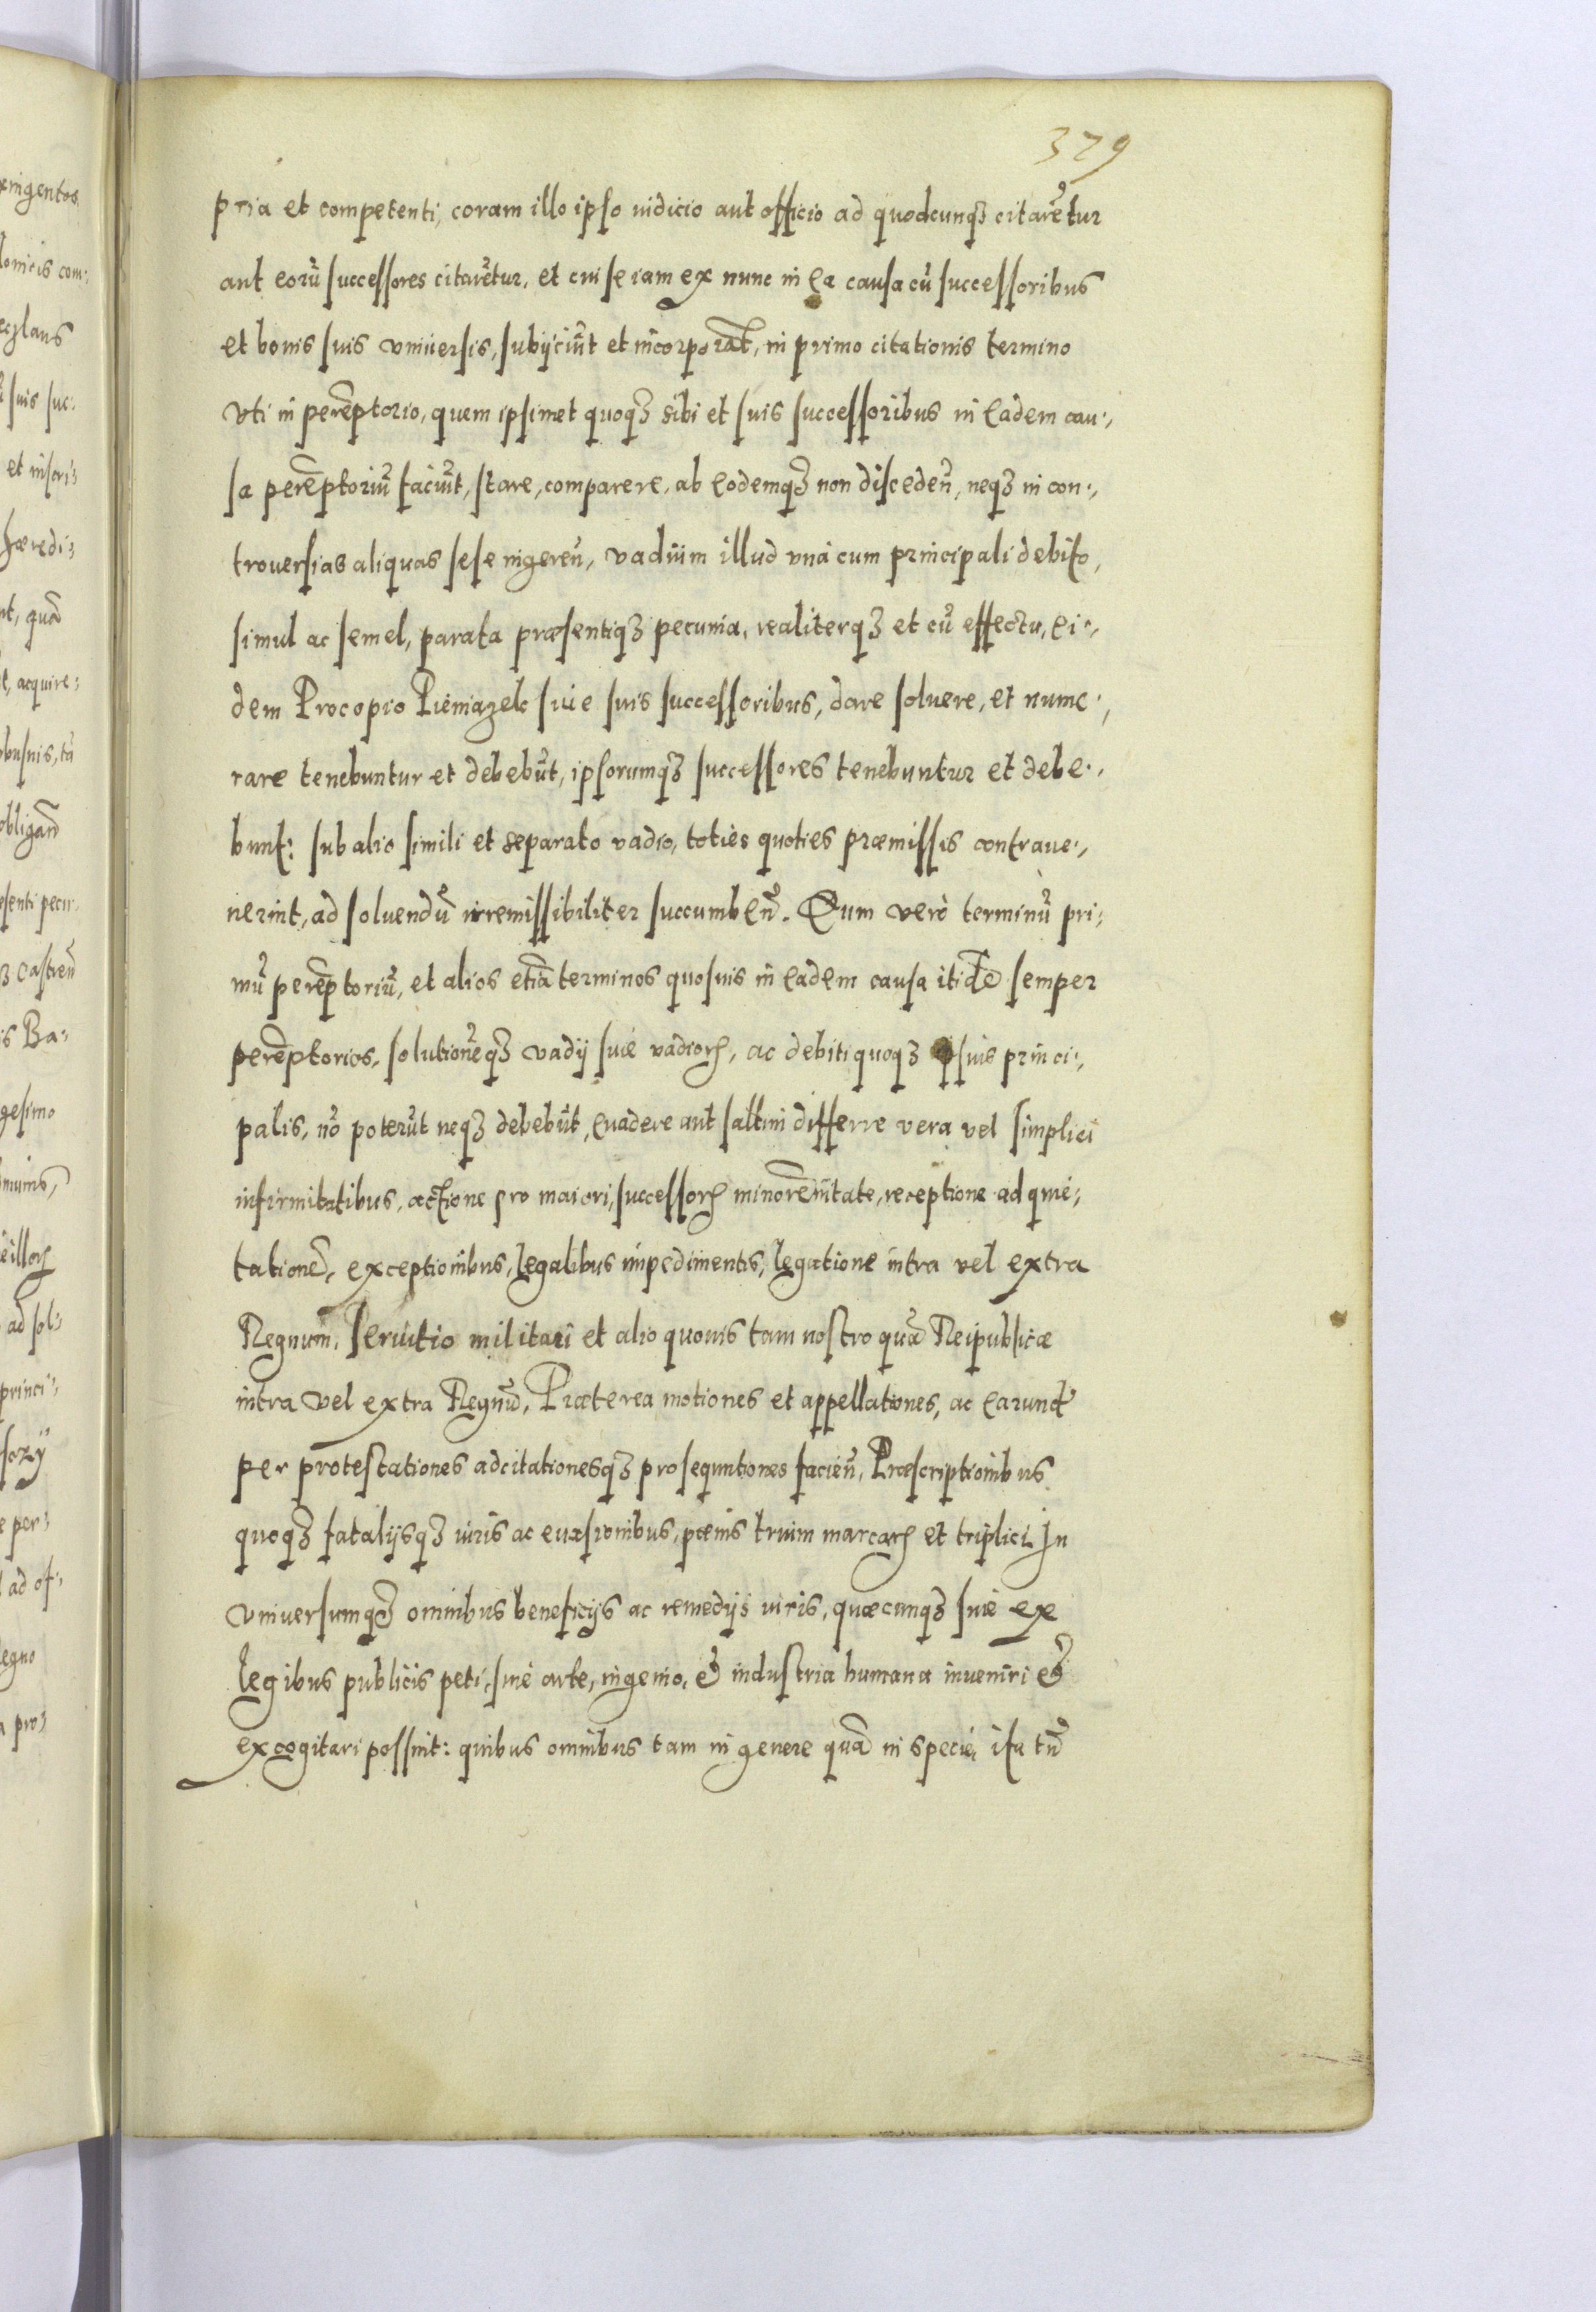 379
pria et competenti, coram illo ipso iudicio aut officio ad quodcunqꝫ citarētur
aut eorū successores citarētur, et cui se iam ex nunc in ea causa cū successoribus
et bonis suis vniuersis, subijciūt et incorporāt, in primo citationis termino
vti in perēptorio, quem ipsimet quoqꝫ sibi et suis successoribus in eadem cau-,
sa perēptoriū faciūt, stare, comparere, ab eodemqꝫ non disceden̄, neqꝫ in con-,
trouersias aliquas sese ingeren̄, vadium illud vná cum principali debito,
simul ac semel, parata præsentiqꝫ pecunia, realiterqꝫ et cū effectu, ei-,
dem Procopio Pieniązek siue suis successoribus, dare soluere, et nume-,
rare tenebuntur et debebūt, ipsorumqꝫ successores tenebuntur et debe-,
bunt: sub alio simili et separato vadio, toties quoties præmissis contraue-,
nerint, ad soluendū irremissibiliter succumben̄. Qum verò terminū pri-
mū perēptoriū, et alios etiā terminos quosuis in eadem causa itidē semper
perēptorios, solutionēqꝫ vadij siue vadioꝝ, ac debiti quoqꝫ siue princi-,
palis, nō poterūt neqꝫ debebūt, euadere aut saltim differre vera vel simplici
infirmitatibus, actione pro maiori, successoꝝ minorēnitate, receptione ad quie-,
tationē, exceptionibus, legalibus impedimentis, legatione intra vel extra
Regnum, seruitio militari et alio quouis tam nostro quā Reipublicæ
intra vel extra Regnū, Præterea motiones et appellationes, ac earundē
per protestationes adcitationesqꝫ prosequutiones facien̄, Præscriptionibus
quoqꝫ fatalijsqꝫ iuris ac euasionibus, pœnis trium marcaꝝ et triplici In
vniuersumqꝫ omnibus beneficijs ac remedijs iuris, quæcunqꝫ siue ex
legibus publicis peti, siue arte, ingenio, et industria humana inueniri et
excogitari possint: quibus omnibus tam in genere quā in specie, ista tn̄